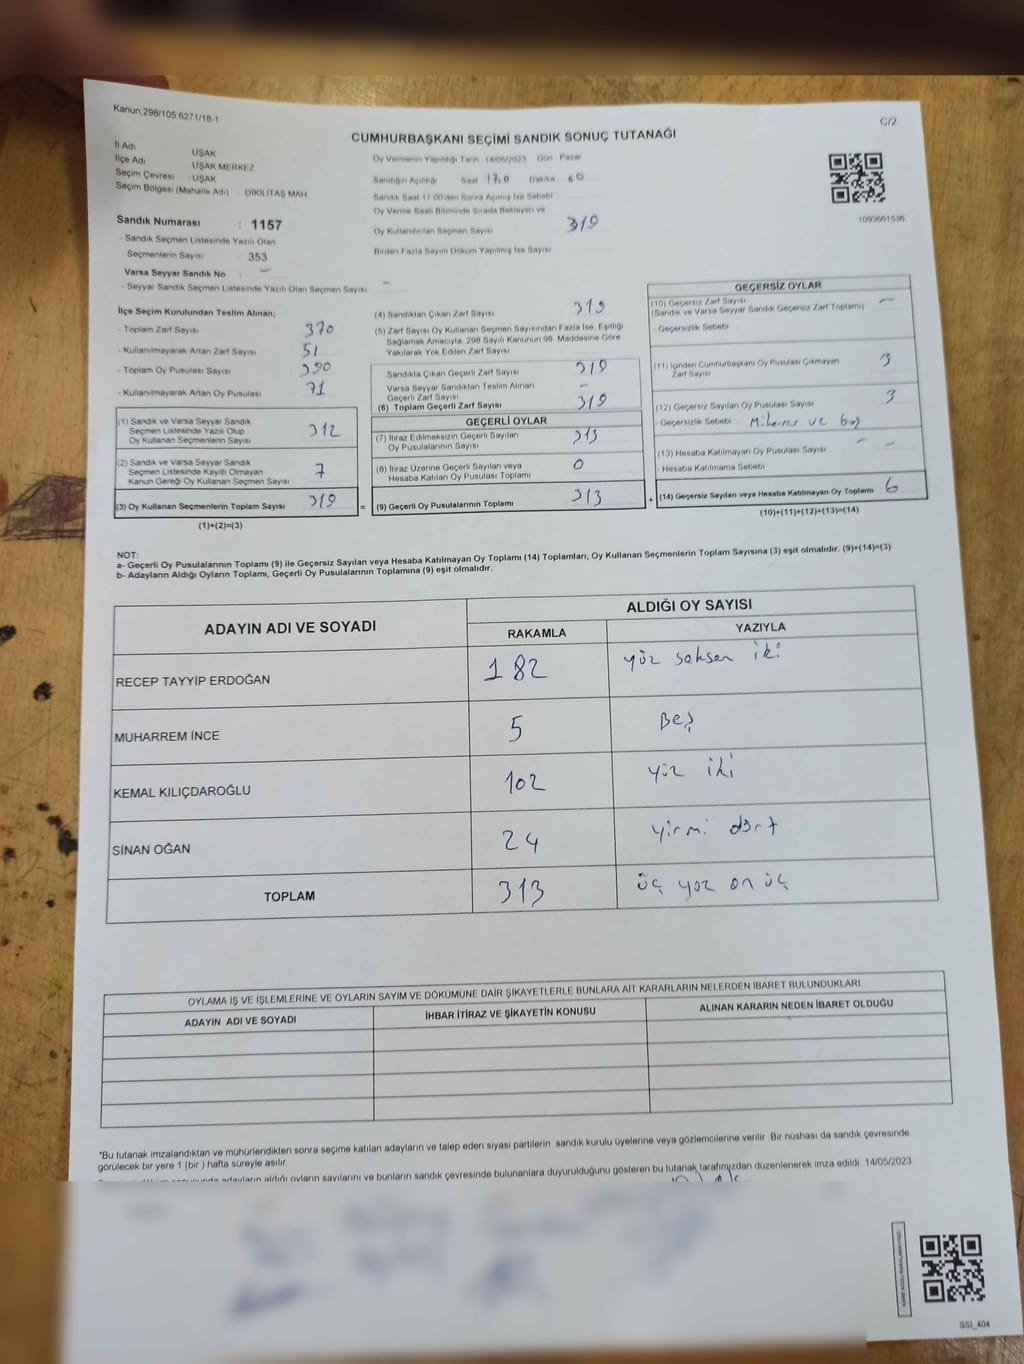 Kanun,298/105,6271/18-1
C/2
CUMHURBAŞKANI SEÇİMİ SANDIK SONUÇ TUTANAĞI
İl Adı UŞAK
İlçe Adı UŞAK MERKEZ
Seçim Çevresi : UŞAK
Seçim Bölgesi (Mahalle Adı) DİKİLİTAŞ MAH
Oy Vermenin Yapıldığı Tarih 14/05/2023 Gün : Pazar
Sandığın Açıldığı Saat 17,0 Dakika 60
Sandık Saat 17:00'den Sonra Açılmış İse Sebebi
Oy Verme Saati Bitiminde Sırada Bekleyen ve
Oy Kullandırılan Seçmen Sayısı 319
Birden Fazla Sayım Döküm Yapılmış İse Sayısı
1093661536
Sandık Numarası : 1157
- Sandık Seçmen Listesinde Yazılı Olan
Seçmenlerin Sayısı : 353
Varsa Seyyar Sandık No : —
- Seyyar Sandık Seçmen Listesinde Yazılı Olan Seçmen Sayısı –
İlçe Seçim Kurulundan Teslim Alınan;
- Toplam Zarf Sayısı 370
- Kullanılmayarak Artan Zarf Sayısı 51
- Toplam Oy Pusulası Sayısı 390
- Kullanılmayarak Artan Oy Pusulası 71
(1) Sandık ve Varsa Seyyar Sandık
Seçmen Listesinde Yazılı Olup
Oy Kullanan Seçmenlerin Sayısı 312
(2) Sandık ve Varsa Seyyar Sandık
Seçmen Listesinde Kayıtlı Olmayan
Kanun Gereği Oy Kullanan Seçmen Sayısı 7
(3) Oy Kullanan Seçmenlerin Toplam Sayısı 319
(1)+(2)=(3)
(4) Sandıktan Çıkan Zarf Sayısı 319
(5) Zarf Sayısı Oy Kullanan Seçmen Sayısından Fazla İse, Eşitliği
Sağlamak Amacıyla, 298 Sayılı Kanunun 98. Maddesine Göre
Yakılarak Yok Edilen Zarf Sayısı
Sandıkta Çıkan Geçerli Zarf Sayısı 319
Varsa Seyyar Sandıktan Teslim Alınan
Geçerli Zarf Sayısı –
(6) Toplam Geçerli Zarf Sayısı 319
GEÇERLİ OYLAR
(7) İtiraz Edilmeksizin Geçerli Sayılan
Oy Pusulalarının Sayısı 313
(8) İtiraz Üzerine Geçerli Sayılan veya
Hesaba Katılan Oy Pusulası Toplamı 0
= (9) Geçerli Oy Pusulalarının Toplamı 313
GEÇERSİZ OYLAR
(10) Geçersiz Zarf Sayısı —
(Sandık ve Varsa Seyyar Sandık Geçersiz Zarf Toplamı)
- Geçersizlik Sebebi
(11) İçinden Cumhurbaşkanı Oy Pusulası Çıkmayan
Zarf Sayısı 3
(12) Geçersiz Sayılan Oy Pusulası Sayısı 3
- Geçersizlik Sebebi ve boş
(13) Hesaba Katılmayan Oy Pusulası Sayısı –
- Hesaba Katılmama Sebebi
+ (14) Geçersiz Sayılan veya Hesaba Katılmayan Oy Toplamı 6
(10)+(11)+(12)+(13)=(14)
NOT:
a- Geçerli Oy Pusulalarının Toplamı (9) ile Geçersiz Sayılan veya Hesaba Katılmayan Oy Toplamı (14) Toplamları, Oy Kullanan Seçmenlerin Toplam Sayısına (3) eşit olmalıdır. (9)+(14)=(3)
b- Adayların Aldığı Oyların Toplamı, Geçerli Oy Pusulalarının Toplamına (9) eşit olmalıdır.
ADAYIN ADI VE SOYADI
ALDIĞI OY SAYISI
RAKAMLA YAZIYLA
RECEP TAYYİP ERDOĞAN 182 yüz seksen iki
MUHARREM İNCE 5 Beş
KEMAL KILIÇDAROĞLU 102 yüz iki
SİNAN OĞAN 24 yirmi dört
TOPLAM 313 üç yüz on üç
OYLAMA İŞ VE İŞLEMLERİNE VE OYLARIN SAYIM VE DÖKÜMÜNE DAİR ŞİKAYETLERLE BUNLARA AİT KARARLARIN NELERDEN İBARET BULUNDUKLARI
ADAYIN ADI VE SOYADI İHBAR İTİRAZ VE ŞİKAYETİN KONUSU ALINAN KARARIN NEDEN İBARET OLDUĞU
*Bu tutanak imzalandıktan ve mühürlendikten sonra seçime katılan adayların ve talep eden siyasi partilerin sandık kurulu üyelerine veya gözlemcilerine verilir. Bir nüshası da sandık çevresinde
görülecek bir yere 1 (bir ) hafta süreyle asılır.
adayların aldığı oyların sayılarını ve bunların sandık çevresinde bulunanlara duyurulduğunu gösteren bu tutanak tarafımızdan düzenlenerek imza edildi. 14/05/2023
SSI_404